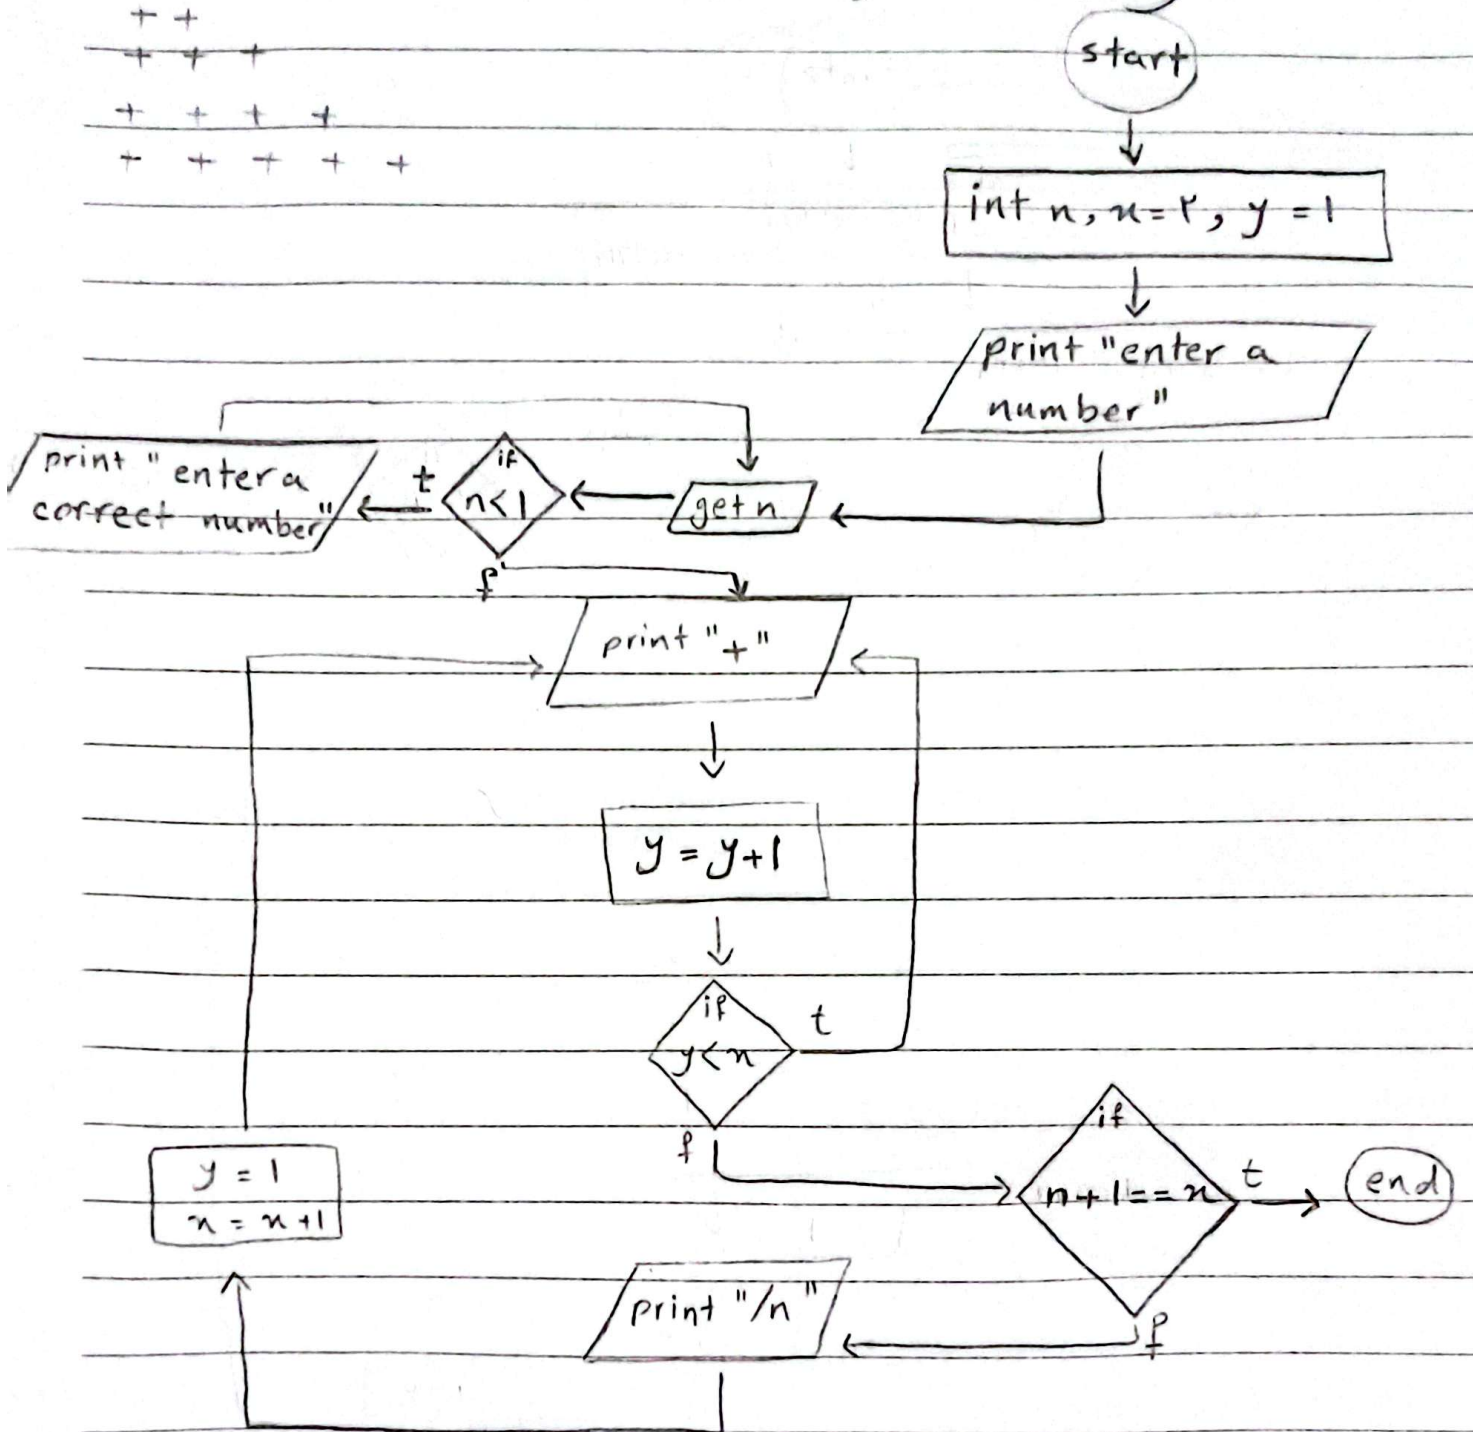 + +
+ + +
+ + + +
+ + + + +
start
int n, x=۲, y=1
print "enter a
number"
get n
if
n<1
t
print "enter a
correct number"
f
print "+"
y = y+1
if
y<x
t
f
if
n+1==x
t
end
f
print "/n"
y = 1
x = x+1